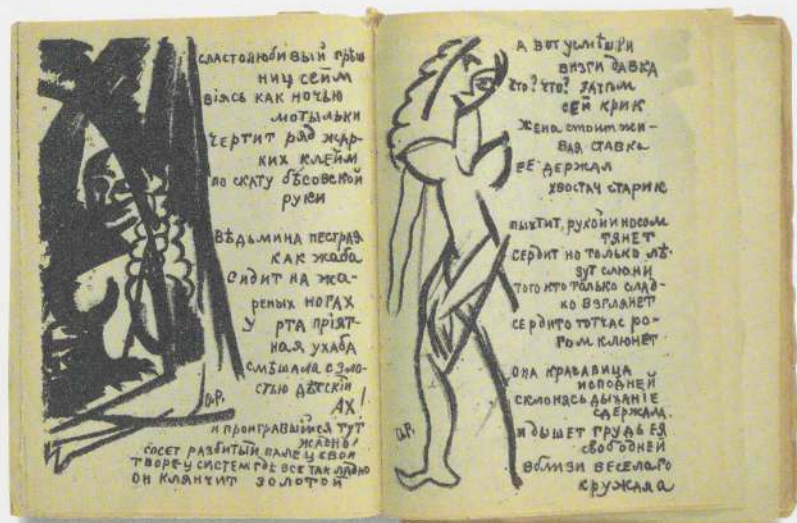 сластолюбивый грѣш
ниц сейм
віясь как ночью
мотыльки
чертит ряд жар-
ких клейм
по скату бѣсовской
руки
вѣдьмина пестрая
как жаба
сидит на жа-
реных ногах
у рта пріят-
ная ухаба
смѣшала с зло-
стью дѣтскій
ах!
О.Р.
и проигравшийся тут
жадно
сосет разбитый палец свой
творец систем гдѣ все так ладно
он клянчит золотой
а вот усмѣшки
визги давка
что? что? зачѣм
сей крик
жена стоит жи-
вая ставка
её держал
хвостач старик
пыхтит, рукой и носом
тянет
сердит но только лѣ-
зут слюни
того кто только слад-
ко взглянет
сердито тотчас ро-
гом клюнет
она красавица
исподней
склонясь дыханіе
сдержала
и дышет грудь ея
свободней
вблизи веселаго
кружала
О.Р.